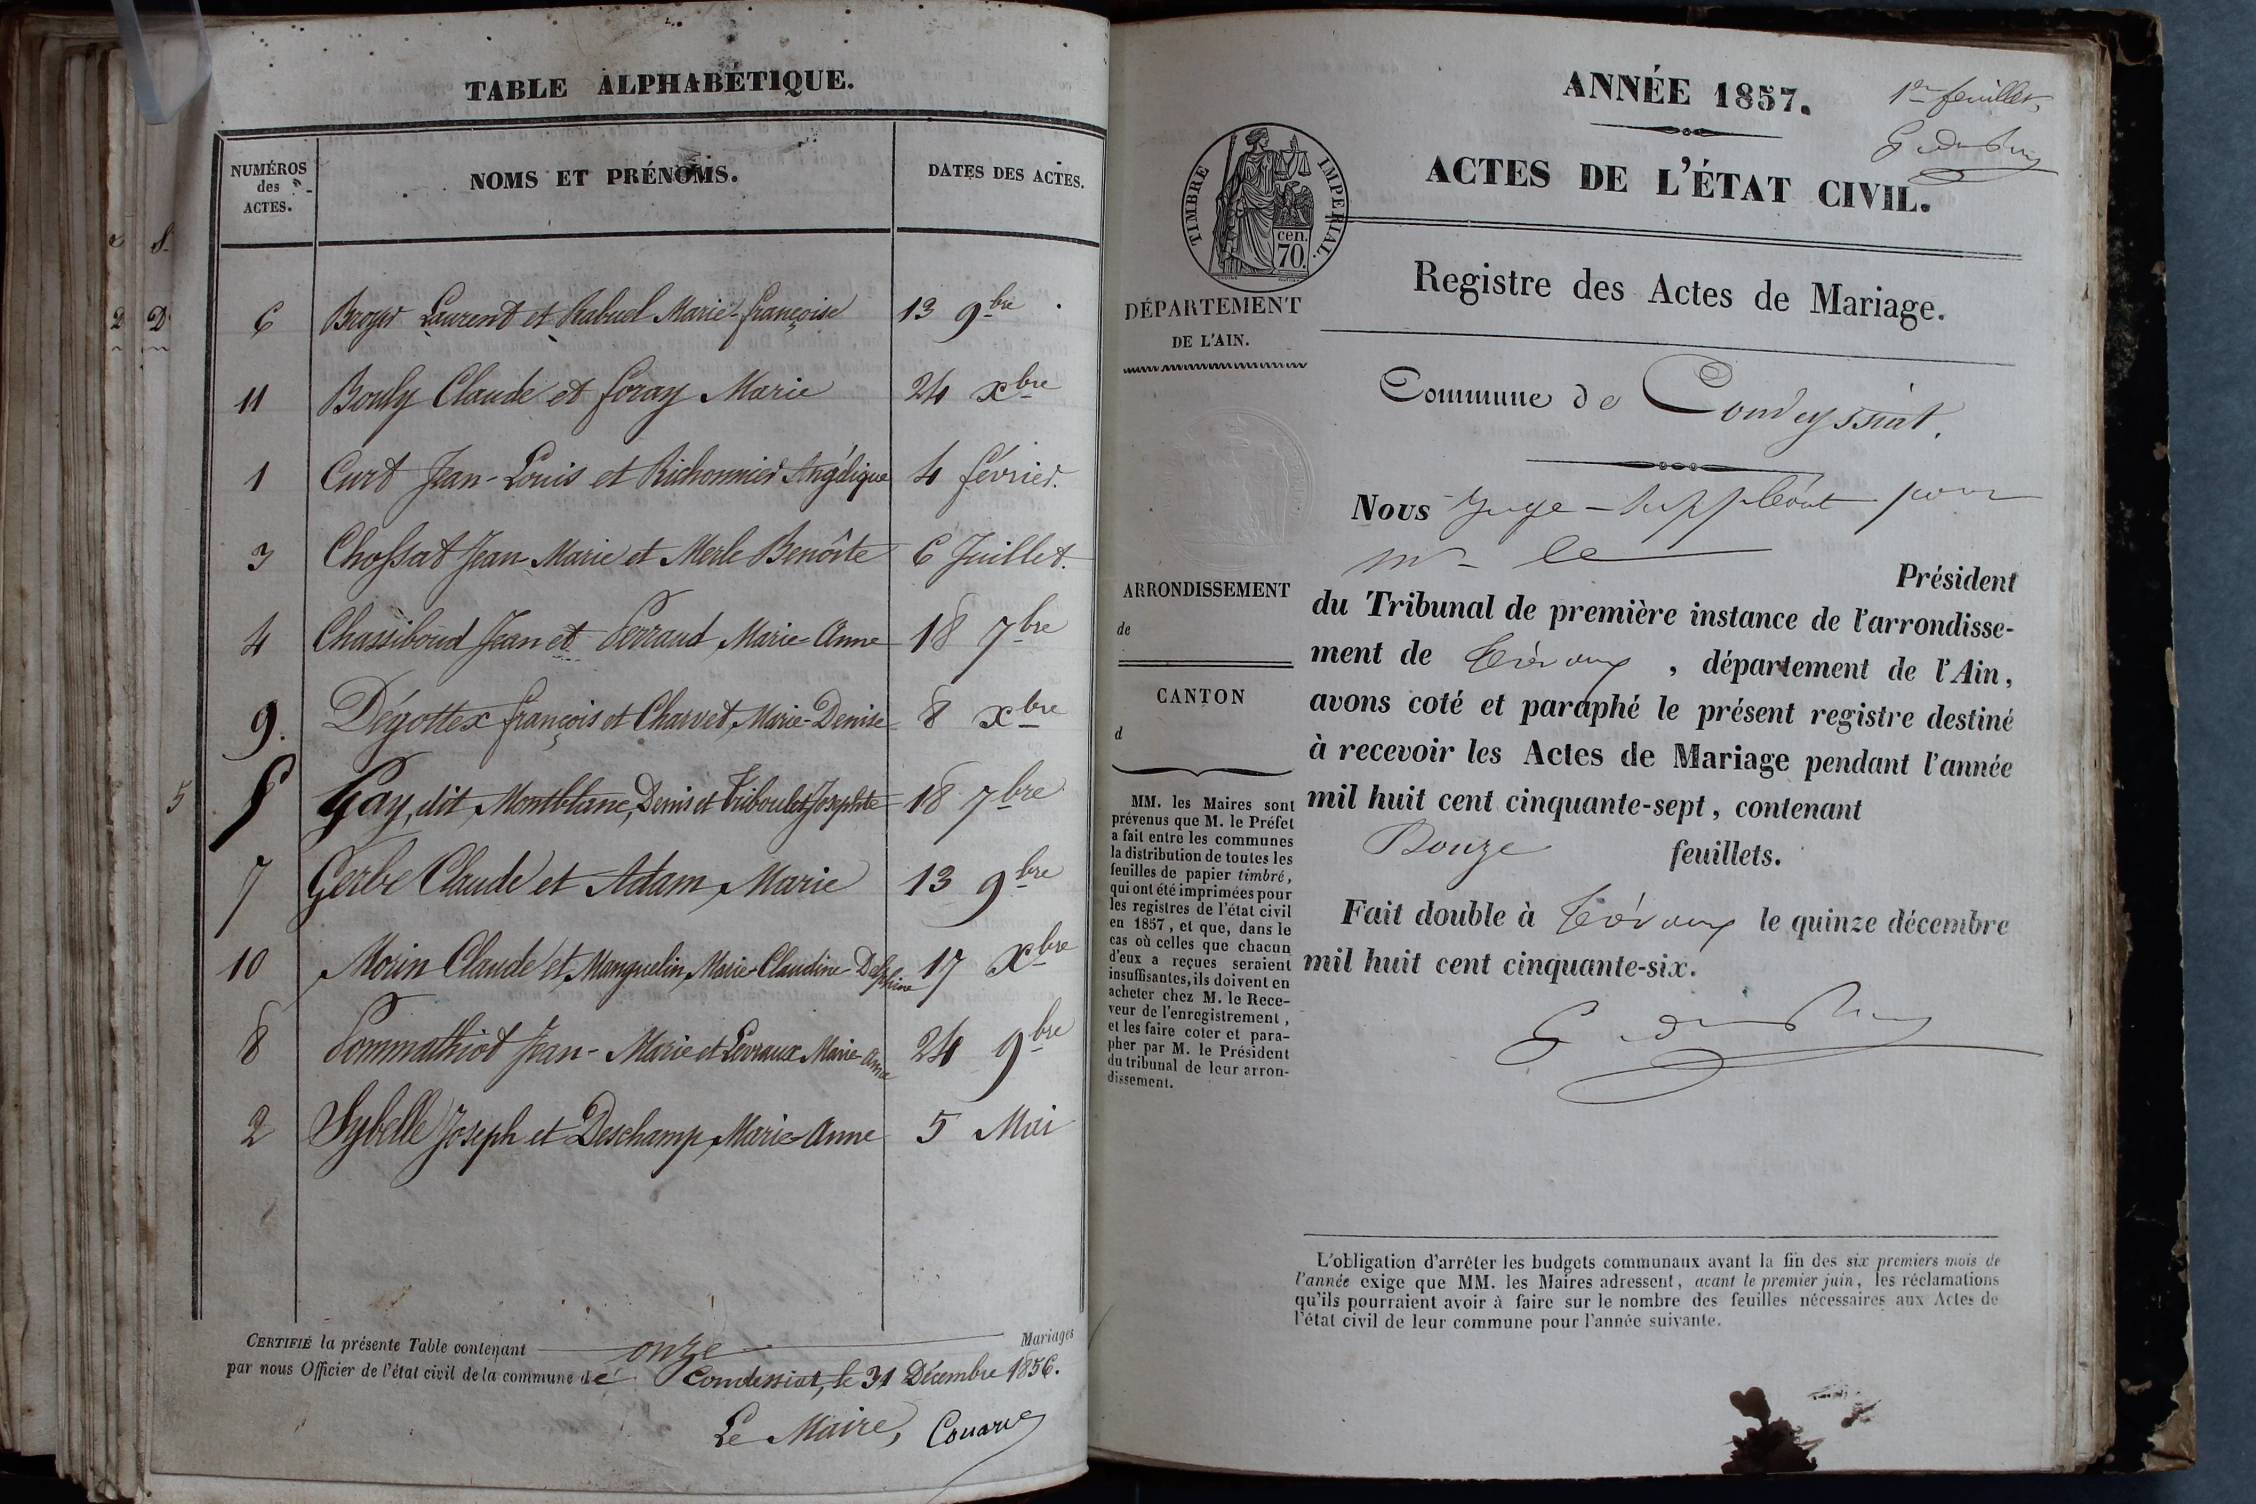 TABLE ALPHABÉTIQUE.
NUMÉROS
des
ACTES.
NOMS ET PRÉNOMS.
DATES DES ACTES.
6 Broyer Laurent et Rabuel Marie-françoise 13 9bre
11 Bouly Claude et foray Marie 24 xbre
1 Curt Jean-Louis et Richonnier Angélique 4 février.
3 Chossat Jean-Marie et Merle Benoîte 6 Juillet.
4 Chassiboud Jean et Perraud Marie-Anne 18 7bre
9. Dégottex françois et Charvet Marie-Denise 8 xbre
5 5 Gay, dit Montblanc, Denis et Triboulet Josephte 18 7bre
7 Gerbe Claude et Adam Marie 13 9bre
10 Morin Claude et Manguelin Marie-Claudine-Delphine 17 Xbre
8 Pommathiot Jean-Marie et Levraux Marie-Anne 24 9bre
2 Sybelle Joseph et Deschamp Marie-Anne 5 Mai
CERTIFIÉ la présente Table contenant onze Mariages
par nous Officier de l'état civil de la commune de Condessiat, le 31 Décembre 1856.
Le Maire,
ANNÉE 1857.
1er feuillet,
ACTES DE L'ÉTAT CIVIL.
TIMBRE IMPERIAL.
cen.
70.
Registre des Actes de Mariage.
DÉPARTEMENT
DE L'AIN.
Commune de Condeyssiat.
Nous Juge-suppléant pour
mr le Président
du Tribunal de première instance de l'arrondisse-
ment de Trévoux, département de l'Ain,
avons coté et paraphé le présent registre destiné
à recevoir les Actes de Mariage pendant l'année
mil huit cent cinquante-sept, contenant
Douze feuillets.
Fait double à Trévoux le quinze décembre
mil huit cent cinquante-six.
ARRONDISSEMENT
de
CANTON
d
MM. les Maires sont
prévenus que M. le Préfet
a fait entre les communes
la distribution de toutes les
feuilles de papier timbré,
qui ont été imprimées pour
les registres de l'état civil
en 1857, et que, dans le
cas où celles que chacun
d'eux a reçues seraient
insuffisantes, ils doivent en
acheter chez M. le Rece-
veur de l'enregistrement,
et les faire coter et para-
pher par M. le Président
du tribunal de leur arron-
dissement.
L'obligation d'arrêter les budgets communaux avant la fin des six premiers mois de
l'année exige que MM. les Maires adressent, avant le premier juin, les réclamations
qu'ils pourraient avoir à faire sur le nombre des feuilles nécessaires aux Actes de
l'état civil de leur commune pour l'année suivante.